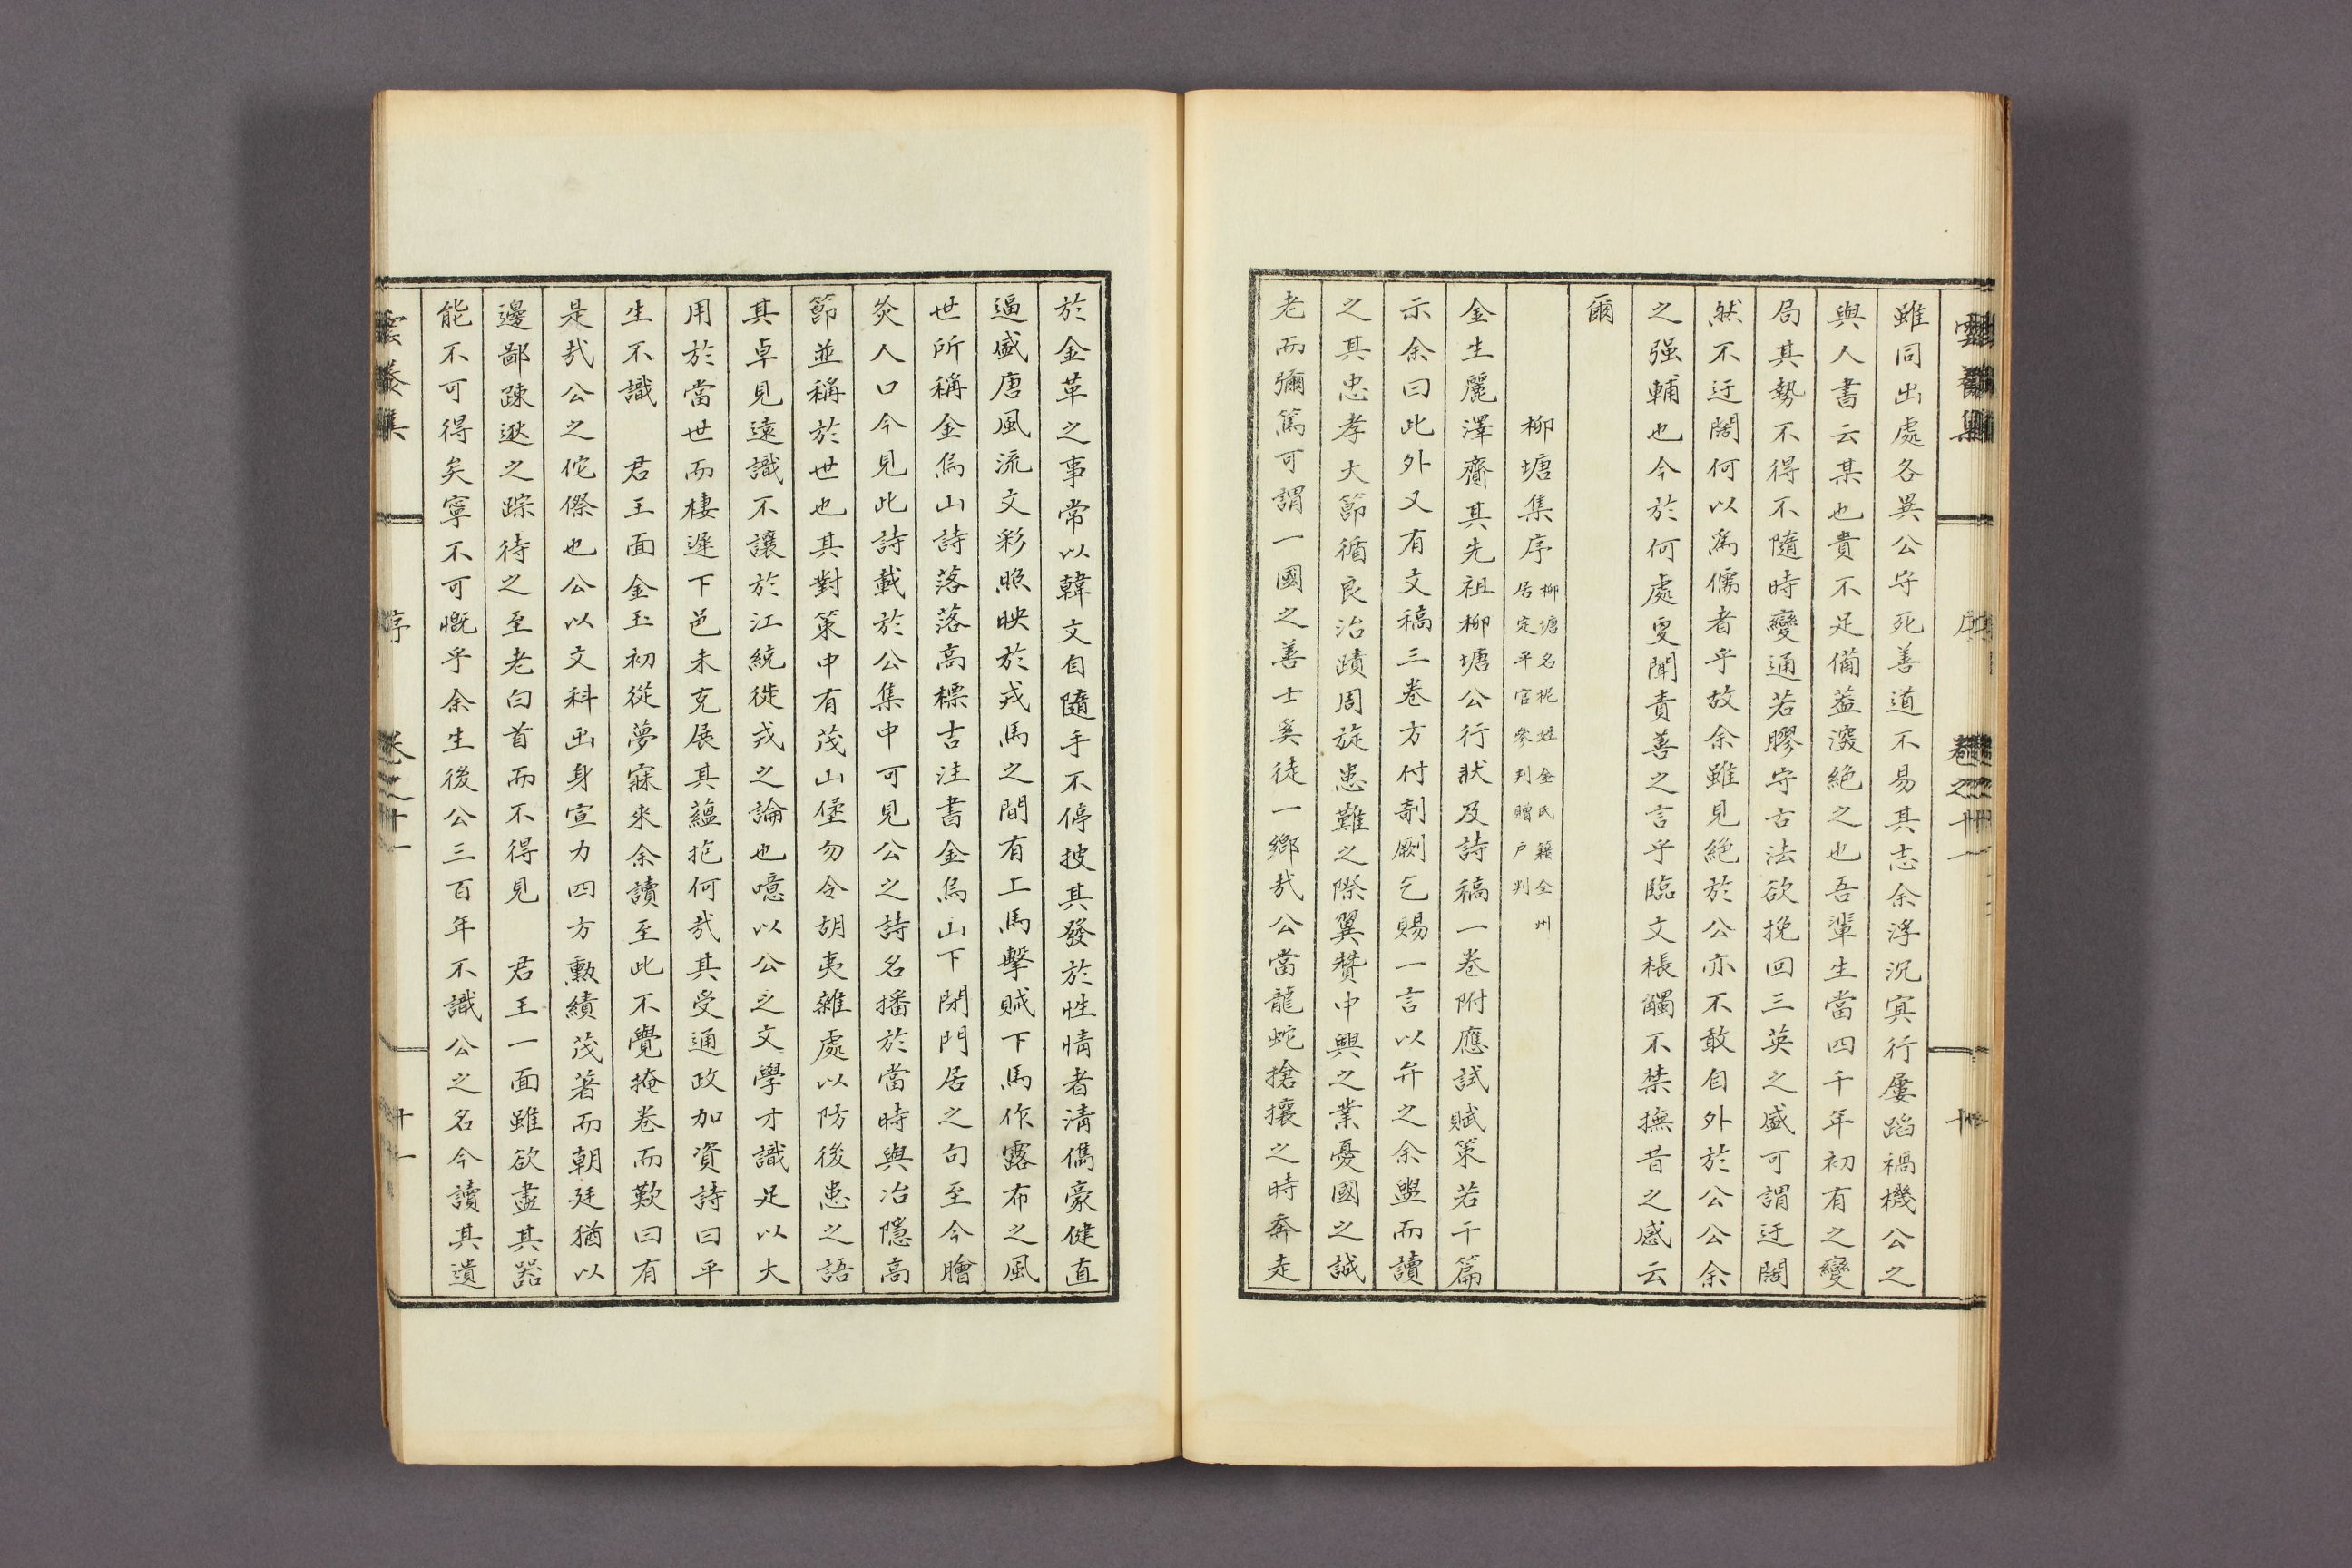 雖同出處各異公守死善道不易其志余浮沉冥行屢蹈禍機公之
與人書云某也貴不足備蓋深絶之也吾輩生當四千年初有之變
局其勢不得不隨時變通若膠守古法欲挽回三英之盛可謂迂闊
然不迂闊何以爲儒者乎故余雖見絶於公亦不敢自外於公公余
之强輔也今於何處更聞責善之言乎臨文棖觸不禁撫昔之感云
爾
柳塘集序
柳塘名 姓金氏籍全州
居定平官參判贈戶判
金生麗澤齎其先祖柳塘公行狀及詩稿一卷附應試賦策若干篇
示余曰此外又有文稿三卷方付剞劂乞賜一言以弁之余盥而讀
之其忠孝大節循良治蹟周旋患難之際翼贊中興之業憂國之誠
老而彌篤可謂一國之善士奚徒一鄉㢤公當龍蛇搶攘之時奔走
於金革之事常以韓文自隨手不停披其發於性情者淸儁豪健直
逼盛唐風流文彩照映於戎馬之間有上馬擊賊下馬作露布之風
世所稱金烏山詩落落高標吉注書金烏山下閉門居之句至今膾
炙人口今見此詩載於公集中可見公之詩名播於當時與冶隱高
節並稱於世也其對策中有茂山堡勿令胡夷雜處以防後患之語
其卓見遠識不讓於江統徙戎之論也噫以公之文學才識足以大
用於當世而棲遲下邑未克展其蘊抱何㢤其受通政加資詩曰平
生不識　君王面金玉初從夢寐來余讀至此不覺掩卷而歎曰有
是㢤公之侘傺也公以文科出身宣力四方勲績茂著而朝廷猶以
邊鄙踈逖之踪待之至老白首而不得見　君王一面雖欲盡其器
能不可得矣寧不可慨乎余生後公三百年不識公之名今讀其遺
雲養集　序　卷之十　十一